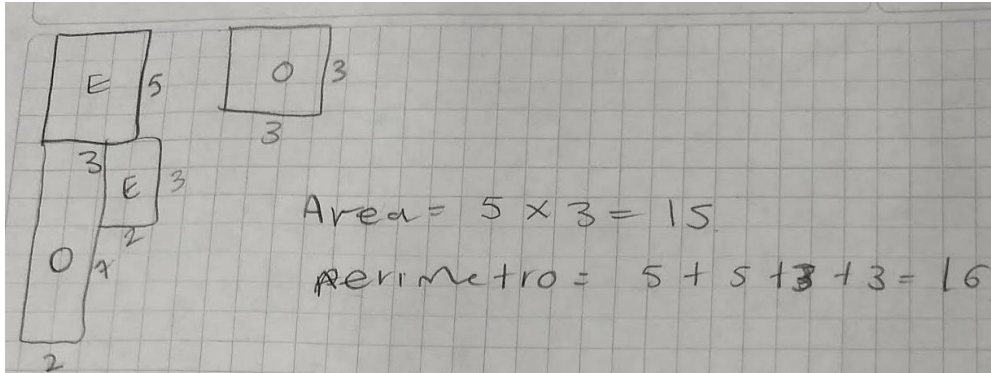 E 5
O 3
3
3
E 3
2
O 7
2
Area = 5 x 3 = 15
perimetro = 5 + 5 + 3 + 3 = 16